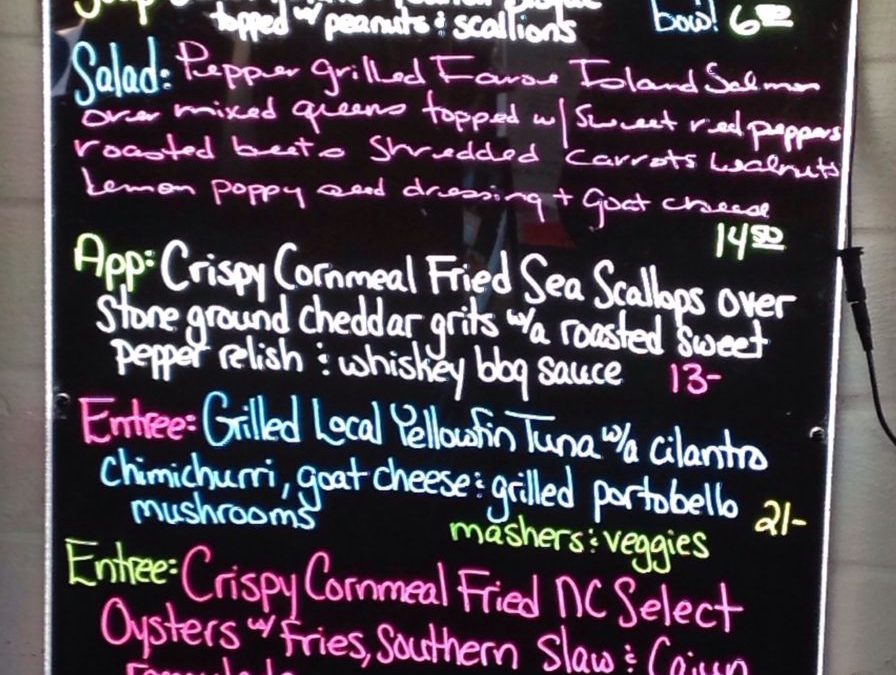 Soup:
topped w/ peanuts & scallions bowl 6⁵⁰
Salad: Pepper grilled Faroe Island Salmon
over mixed greens topped w/ Sweet red peppers
roasted beets Shredded Carrots Walnuts
Lemon poppy seed dressing + Goat cheese
14⁵⁰
App: Crispy Cornmeal Fried Sea Scallops over
Stone ground cheddar grits w/a roasted sweet
pepper relish & whiskey bbq sauce 13-
Entree: Grilled Local Yellowfin Tuna w/a cilantro
chimichurri, goat cheese & grilled portobello
mushrooms 21-
mashers & veggies
Entree: Crispy Cornmeal Fried NC Select
Oysters w/ Fries, Southern Slaw & Cajun